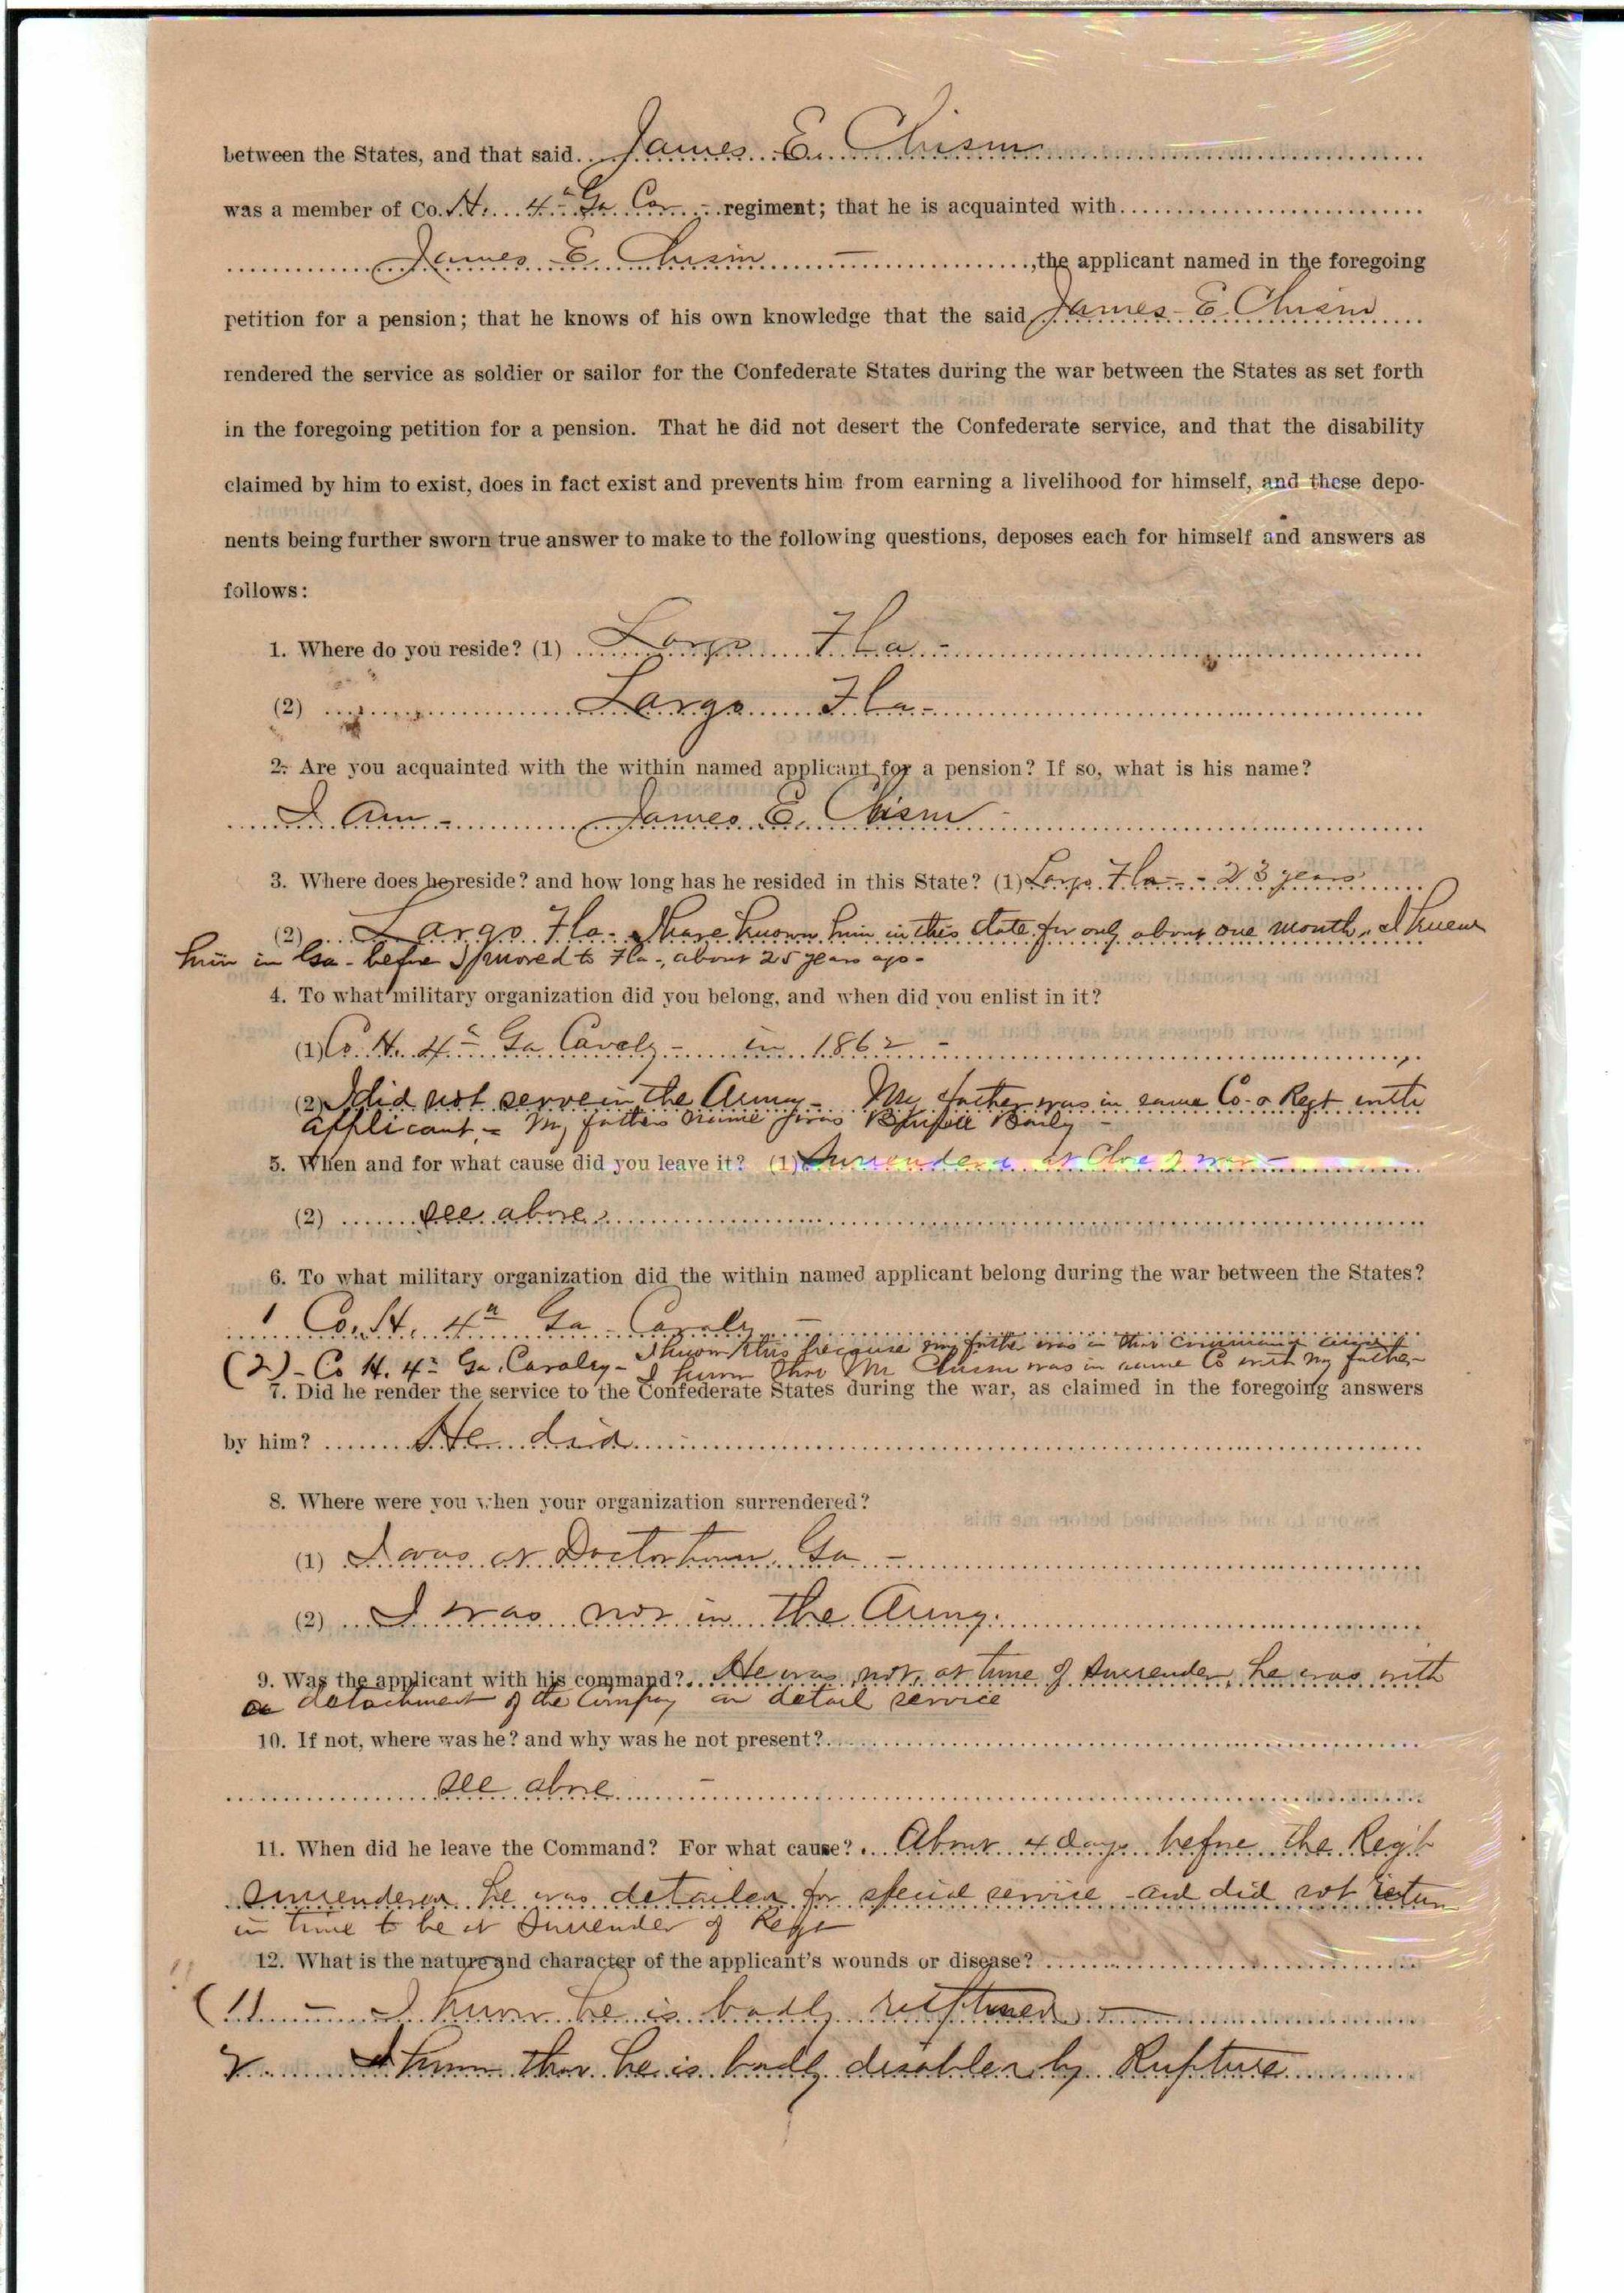 between the States, and that said James E. Chism
was a member of Co. H. 4th Ga Cav - regiment; that he is acquainted with
James E Chism - , the applicant named in the foregoing
petition for a pension; that he knows of his own knowledge that the said James E Chism
rendered the service as soldier or sailor for the Confederate States during the war between the States as set forth
in the foregoing petition for a pension. That he did not desert the Confederate service, and that the disability
claimed by him to exist, does in fact exist and prevents him from earning a livelihood for himself, and these depo-
nents being further sworn true answer to make to the following questions, deposes each for himself and answers as
follows:
1. Where do you reside? (1) Largo Fla -
(2) Largo Fla -
2. Are you acquainted with the within named applicant for a pension? If so, what is his name?
I am - James E. Chism -
3. Where does he reside? and how long has he resided in this State? (1) Largo Fla - - 23 years
(2) Largo Fla - I have known him in this state for only about one month. I knew
him in Ga - before I moved to Fla -, about 25 years ago -
4. To what military organization did you belong, and when did you enlist in it?
(1) Co. H. 4th Ga Cavaly - in 1862 -
(2) I did not serve in the Army - My father was in same Co. & Regt with
applicant, - My fathers name was Baily -
5. When and for what cause did you leave it? (1) Surrendered at Close of war -
(2) see above
6. To what military organization did the within named applicant belong during the war between the States?
1 Co. H. 4th Ga - Cavaly -
(2) - Co H. 4th Ga. Cavalry - I know this because my father was in that command and
I know that Mr Chism was in same Co with my father -
7. Did he render the service to the Confederate States during the war, as claimed in the foregoing answers
by him? He did
8. Where were you when your organization surrendered?
(1) I was at Doctortown, Ga -
(2) I was not in the Army.
9. Was the applicant with his command? He was not, at time of surrender, he was with
a detachment of the Company on detail service
10. If not, where was he? and why was he not present?
see above -
11. When did he leave the Command? For what cause? About 4 days before the Reg't
surrendered he was detailed for special service - and did not return
in time to be at Surrender of Regt
12. What is the nature and character of the applicant's wounds or disease?
(1) - I know he is badly ruptured -
2. I know that he is badly disabled by Rupture